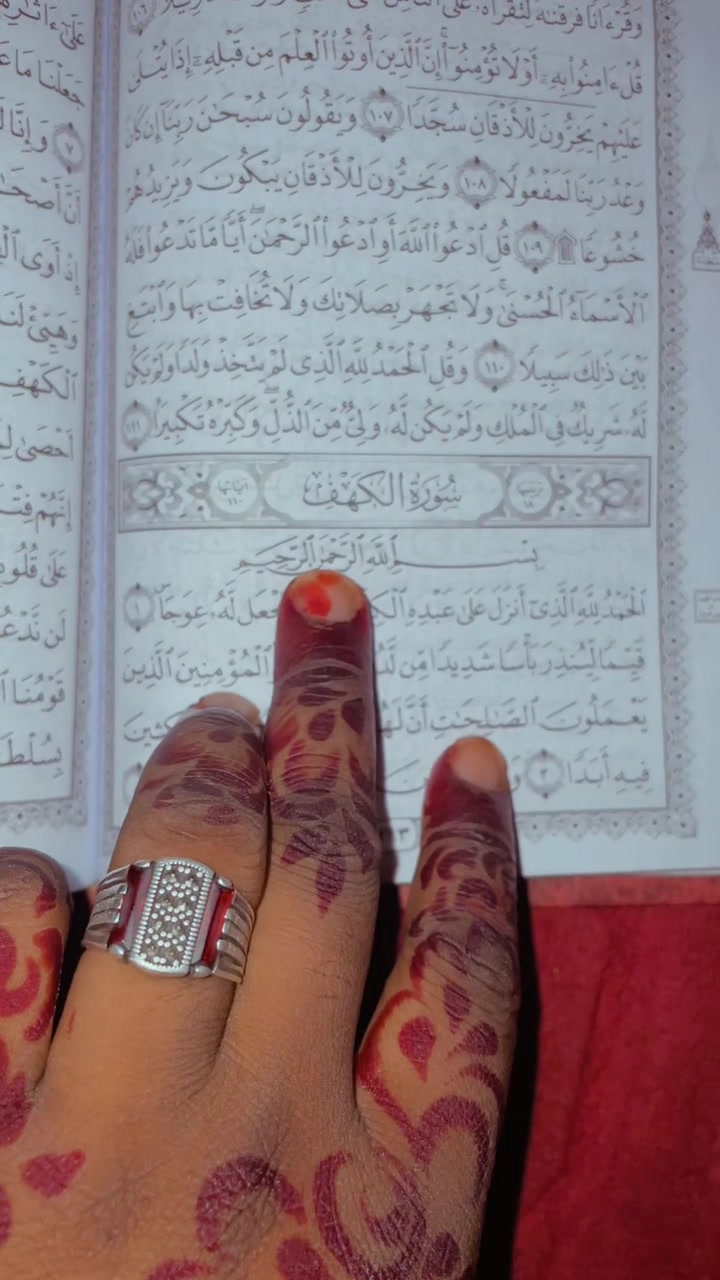 وَقُرْءَانًا فَرَقْنَٰهُ لِتَقْرَأَهُۥ عَلَى ٱلنَّاسِ
قُلْ ءَامِنُوا۟ بِهِۦٓ أَوْ لَا تُؤْمِنُوٓا۟ ۚ إِنَّ ٱلَّذِينَ أُوتُوا۟ ٱلْعِلْمَ مِن قَبْلِهِۦٓ إِذَا يُتْلَىٰ
عَلَيْهِمْ يَخِرُّونَ لِلْأَذْقَانِ سُجَّدًا ١٠٧ وَيَقُولُونَ سُبْحَٰنَ رَبِّنَآ إِن كَانَ
وَعْدُ رَبِّنَا لَمَفْعُولًا ١٠٨ وَيَخِرُّونَ لِلْأَذْقَانِ يَبْكُونَ وَيَزِيدُهُمْ
خُشُوعًا ۩ ١٠٩ قُلِ ٱدْعُوا۟ ٱللَّهَ أَوِ ٱدْعُوا۟ ٱلرَّحْمَٰنَ ۖ أَيًّا مَّا تَدْعُوا۟ فَلَهُ
ٱلْأَسْمَآءُ ٱلْحُسْنَىٰ ۚ وَلَا تَجْهَرْ بِصَلَاتِكَ وَلَا تُخَافِتْ بِهَا وَٱبْتَغِ
بَيْنَ ذَٰلِكَ سَبِيلًا ١١٠ وَقُلِ ٱلْحَمْدُ لِلَّهِ ٱلَّذِى لَمْ يَتَّخِذْ وَلَدًا وَلَمْ يَكُن
لَّهُۥ شَرِيكٌ فِى ٱلْمُلْكِ وَلَمْ يَكُن لَّهُۥ وَلِىٌّ مِّنَ ٱلذُّلِّ ۖ وَكَبِّرْهُ تَكْبِيرًۢا ١١١
ترتيبها ١٨ سُورَةُ الكَهْفِ آياتها ١١٠
بِسْمِ ٱللَّهِ ٱلرَّحْمَٰنِ ٱلرَّحِيمِ
ٱلْحَمْدُ لِلَّهِ ٱلَّذِىٓ أَنزَلَ عَلَىٰ عَبْدِهِ يَجْعَل لَّهُۥ عِوَجَاۜ ١
قَيِّمًا لِّيُنذِرَ بَأْسًا شَدِيدًا مِّن ٱلْمُؤْمِنِينَ ٱلَّذِينَ
يَعْمَلُونَ ٱلصَّٰلِحَٰتِ أَنَّ
فِيهِ أَبَدًا ٣
عَلَىٰٓ
جَعَلْنَا مَا
٧
وَإِنَّا
أَنَّ
إِذْ أَوَى
وَهَيِّئْ لَنَا
ٱلْكَهْفِ
أَحْصَىٰ
إِنَّهُمْ
عَلَىٰ
لَن
قَوْمُنَا